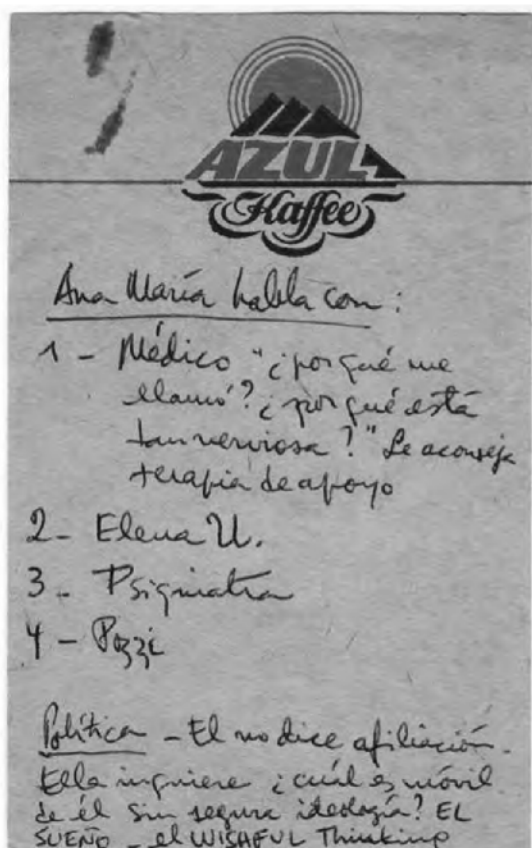 AZUL
Kaffee
Ana María habla con:
1 - Médico "¿porqué me
llamó? ¿por qué está
tan nerviosa?" Le aconseja
terapia de apoyo
2 - Elena U.
3 - Psiquiatra
4 - Pozzi
Política - El no dice afiliación.
Ella inquiere ¿cuál es móvil
de él sin segura ideología? EL
SUEÑO - el WISHFUL Thinking